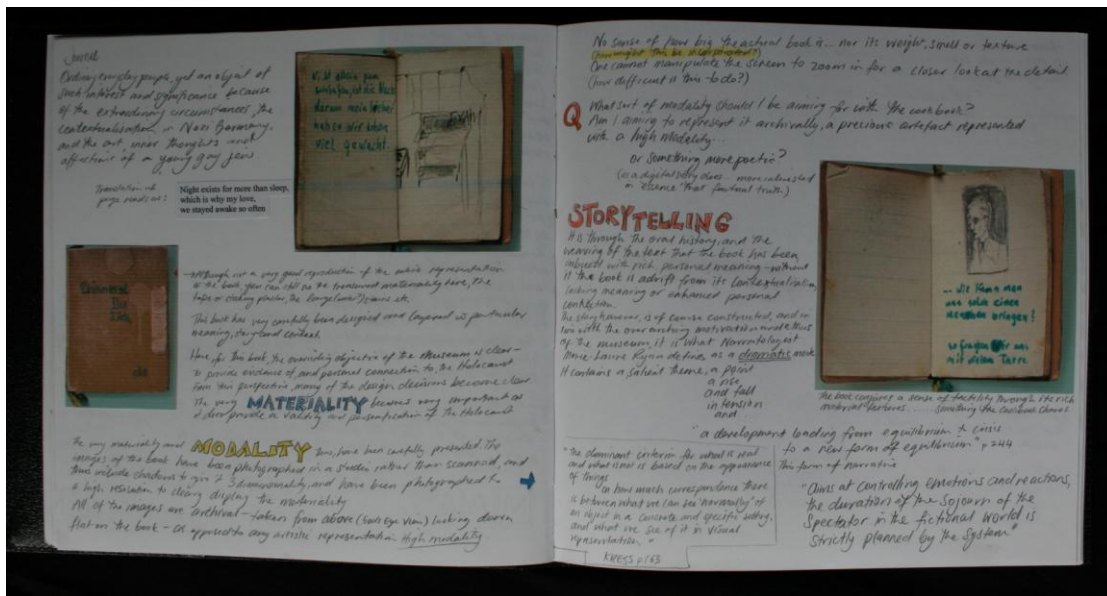 Ordinary everyday people, yet an object of
such interest and significance because
of the extraordinary circumstances, the
contextualisation, in Nazi Germany,
and the art, inner thoughts and
affections of a young gay jew
Translation of
page reads as:
Night exists for more than sleep,
which is why my love,
we stayed awake so often
viel geweckt.
Although not a very good reproduction of the online representation
of the book you can still see the translucent materiality here, the
tape or sticking plaster, the stains etc.
This book has very carefully been designed and layered w particular
meaning, story and context.
Here, for this book, the overriding objective of the museum is clear -
to provide evidence of, and personal connection to, the Holocaust
From this perspective, many of the design decisions become clear
The very MATERIALITY becomes very important as
it does provide a validity and personalisation of the Holocaust
The very materiality and MODALITY thus, have been carefully presented. The
images of the book have been photographed in a studio rather than scanned, and
thus include shadows to give 3 dimensionality, and have been photographed to
a high resolution to clearly display the materiality
All of the images are 'archival' - taken from above (God's Eye View) looking down
flat on the book - as opposed to any artistic representation. High modality
No sense of how big the actual book is... nor its weight, smell or texture
(how might this be incorporated?)
One cannot manipulate the screen to zoom in for a closer look at the detail.
(how difficult is this to do?)
Q What sort of modality should I be aiming for with the cookbook?
Am I aiming to represent it archivally, a precious artefact represented
with a high modality...
or something more poetic?
(as a digital story does... more interested
in essence than factual truth)
STORYTELLING
It is through the oral history, and the
weaving of the text that the book has been
with rich personal meaning - without
it the book is adrift from its contextualisation,
lacking meaning or enhanced personal
connection.
The story however, is of course constructed, and in
line with the overarching motivation and ethos
of the museum, it is what Narratologist
Marie-Laure Ryan defines as a dramatic mode
It contains a salient theme, a point
a rise,
and fall
in tension
and
"a development leading from equilibrium to crisis
to a new form of equilibrium" p244
This form of narrative
"aims at controlling emotions and reactions,
the duration of the sojourn of the
spectator in the fictional world is
strictly planned by the system"
The book conjures a sense of tactility through its rich
material textures..... something the cookbook shares
"The dominant criterion for what is real
and what is not is based on the appearance
of things
on how much correspondence there
is between what we can see 'normally' of
an object in a concrete and specific setting,
and what we see of it in visual
representation."
KRESS p163